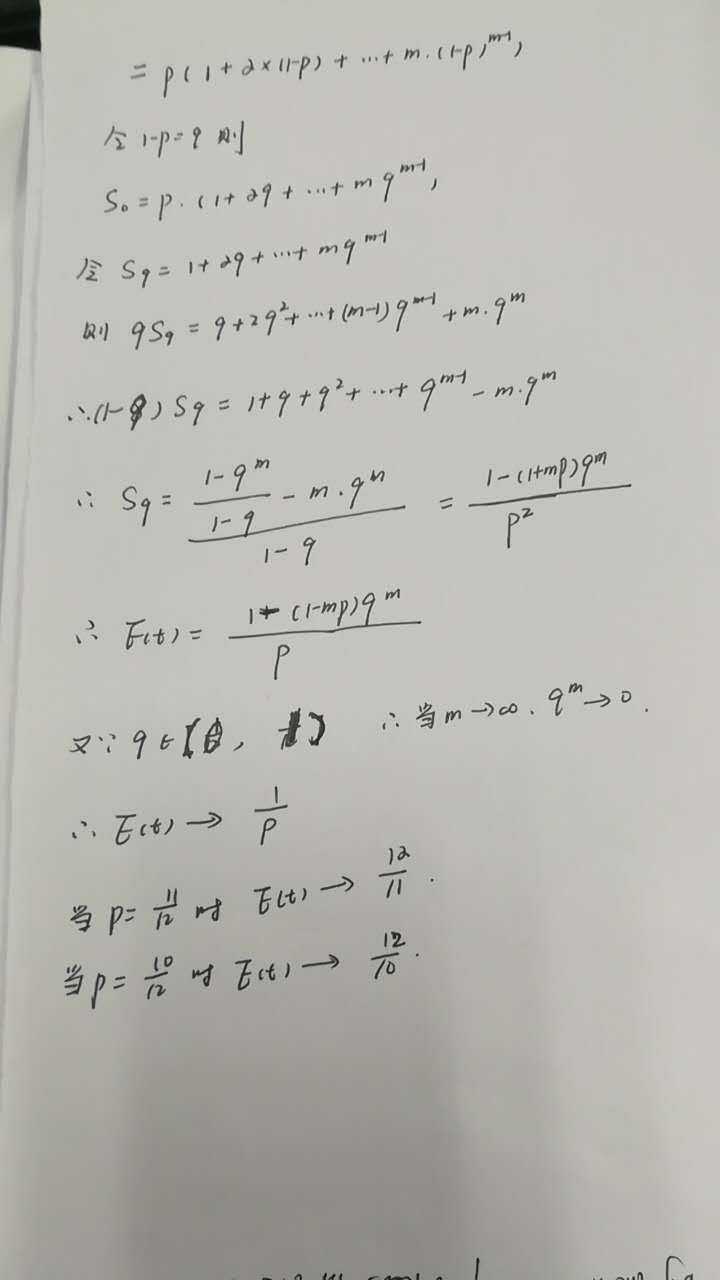 = p(1+2×(1-p)+…+m·(1-p)^{m-1},
令 1-p=q 则
S₀=p·(1+2q+…+mq^{m-1},
令 Sq=1+2q+…+mq^{m-1}
则 qSq=q+2q²+…+(m-1)q^{m-1}+m·q^m
∴(1-q)Sq=1+q+q²+…+q^{m-1}-m·q^m
∴ Sq=\frac{\frac{1-q^m}{1-q}-m·q^m}{1-q}=\frac{1-(1+mp)q^m}{p²}
∴ E(t)=\frac{1-(1-mp)q^m}{p}
又∵ q∈ ∴当m→∞. q^m→0.
∴ E(t)→\frac{1}{p}
当p=\frac{11}{12}时 E(t)→\frac{12}{11}.
当p=\frac{10}{12}时 E(t)→\frac{12}{10}.